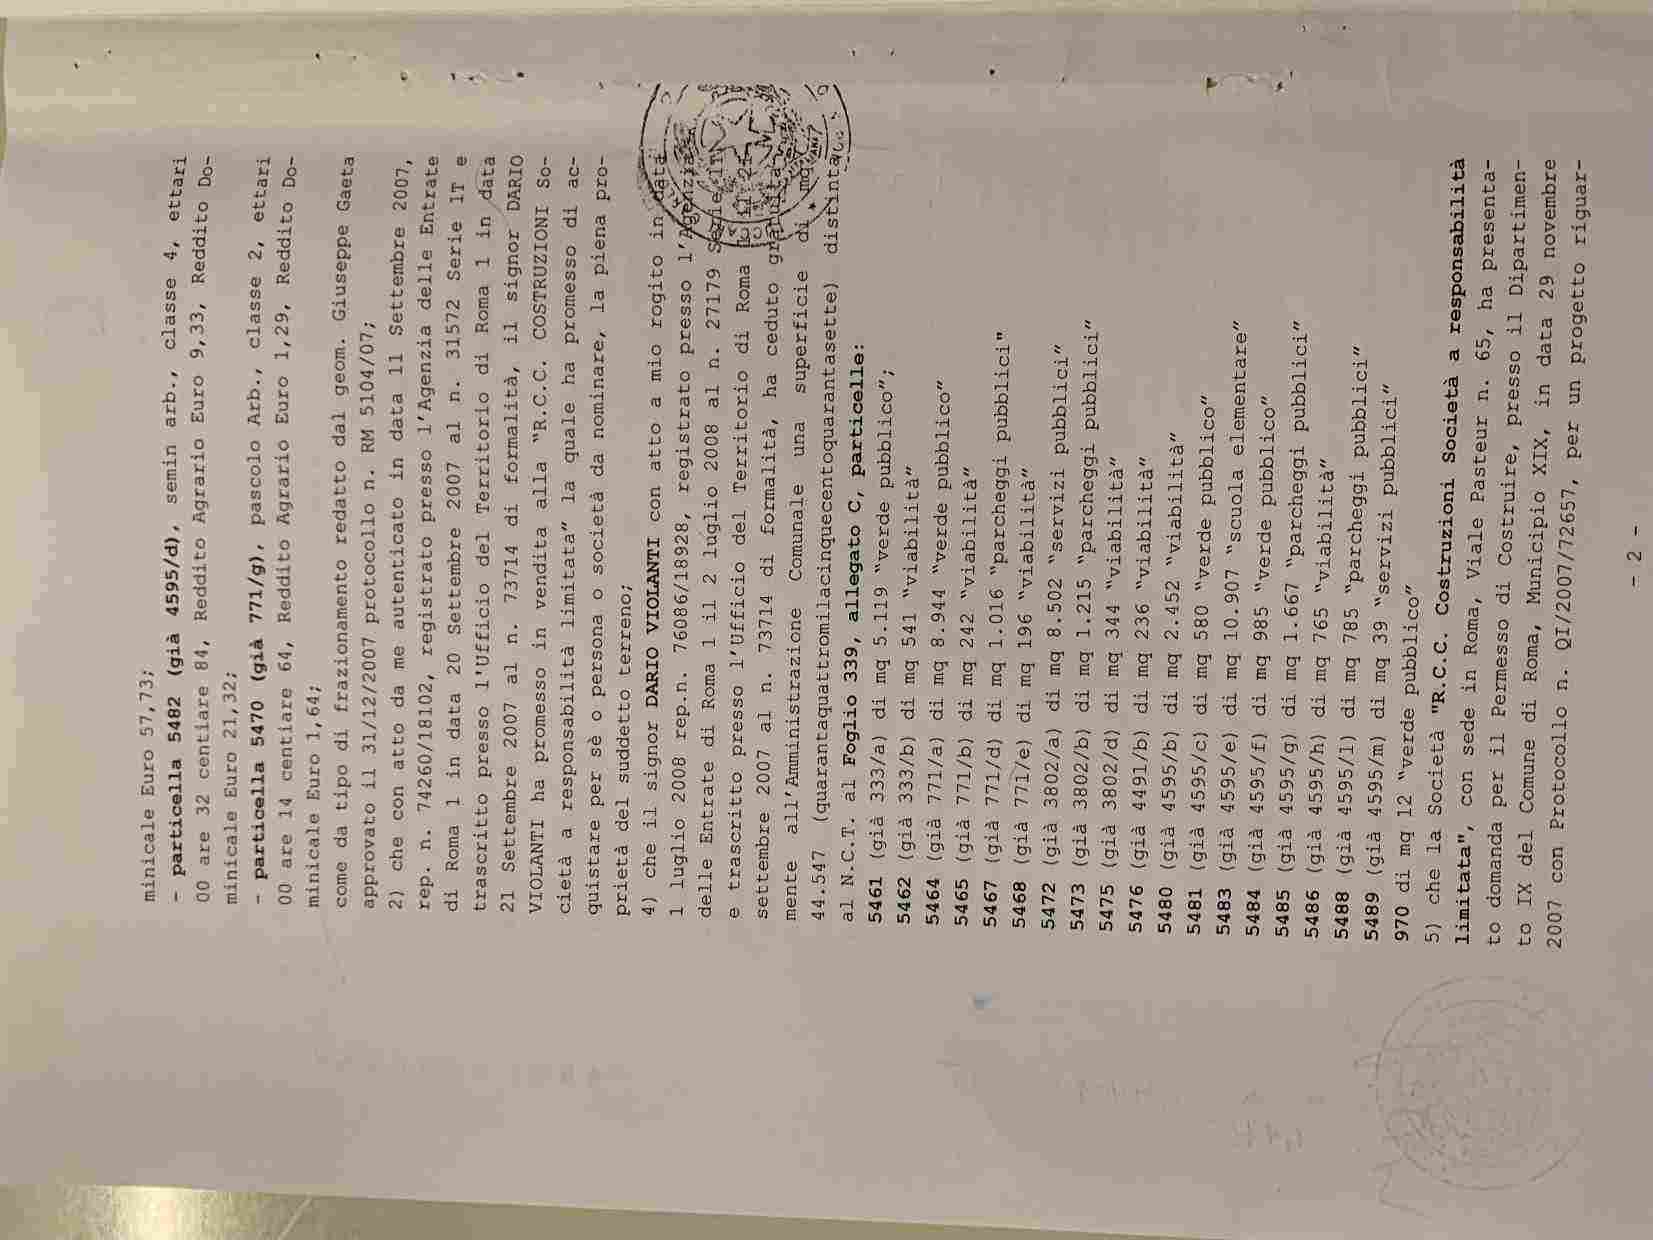 minicale Euro 57,73;
- particella 5482 (già 4595/d), semin arb., classe 4, ettari
00 are 32 centiare 84, Reddito Agrario Euro 9,33, Reddito Do-
minicale Euro 21,32;
- particella 5470 (già 771/g), pascolo Arb., classe 2, ettari
00 are 14 centiare 64, Reddito Agrario Euro 1,29, Reddito Do-
minicale Euro 1,64;
come da tipo di frazionamento redatto dal geom. Giuseppe Gaeta
approvato il 31/12/2007 protocollo n. RM 5104/07;
2) che con atto da me autenticato in data 11 Settembre 2007,
rep. n. 74260/18102, registrato presso l'Agenzia delle Entrate
di Roma 1 in data 20 Settembre 2007 al n. 31572 Serie 1T e
trascritto presso l'Ufficio del Territorio di Roma 1 in data
21 Settembre 2007 al n. 73714 di formalità, il signor DARIO
VIOLANTI ha promesso in vendita alla "R.C.C. COSTRUZIONI So-
cietà a responsabilità limitata" la quale ha promesso di ac-
quistare per sè o persona o società da nominare, la piena pro-
prietà del suddetto terreno;
4) che il signor DARIO VIOLANTI con atto a mio rogito in data
1 luglio 2008 rep.n. 76086/18928, registrato presso l'Agenzia
delle Entrate di Roma 1 il 2 luglio 2008 al n. 27179 Serie 1T
e trascritto presso l'Ufficio del Territorio di Roma 1 il 21
settembre 2007 al n. 73714 di formalità, ha ceduto gratuita-
mente all'Amministrazione Comunale una superficie di mq
44.547 (quarantaquattromilacinquecentoquarantasette) distinta
al N.C.T. al Foglio 339, allegato C, particelle:
5461 (già 333/a) di mq 5.119 "verde pubblico";
5462 (già 333/b) di mq 541 "viabilità"
5464 (già 771/a) di mq 8.944 "verde pubblico"
5465 (già 771/b) di mq 242 "viabilità"
5467 (già 771/d) di mq 1.016 "parcheggi pubblici"
5468 (già 771/e) di mq 196 "viabilità"
5472 (già 3802/a) di mq 8.502 "servizi pubblici"
5473 (già 3802/b) di mq 1.215 "parcheggi pubblici"
5475 (già 3802/d) di mq 344 "viabilità"
5476 (già 4491/b) di mq 236 "viabilità"
5480 (già 4595/b) di mq 2.452 "viabilità"
5481 (già 4595/c) di mq 580 "verde pubblico"
5483 (già 4595/e) di mq 10.907 "scuola elementare"
5484 (già 4595/f) di mq 985 "verde pubblico"
5485 (già 4595/g) di mq 1.667 "parcheggi pubblici"
5486 (già 4595/h) di mq 765 "viabilità"
5488 (già 4595/l) di mq 785 "parcheggi pubblici"
5489 (già 4595/m) di mq 39 "servizi pubblici"
970 di mq 12 "verde pubblico"
5) che la Società "R.C.C. Costruzioni Società a responsabilità
limitata", con sede in Roma, Viale Pasteur n. 65, ha presenta-
to domanda per il Permesso di Costruire, presso il Dipartimen-
to IX del Comune di Roma, Municipio XIX, in data 29 novembre
2007 con Protocollo n. QI/2007/72657, per un progetto riguar-
- 2 -